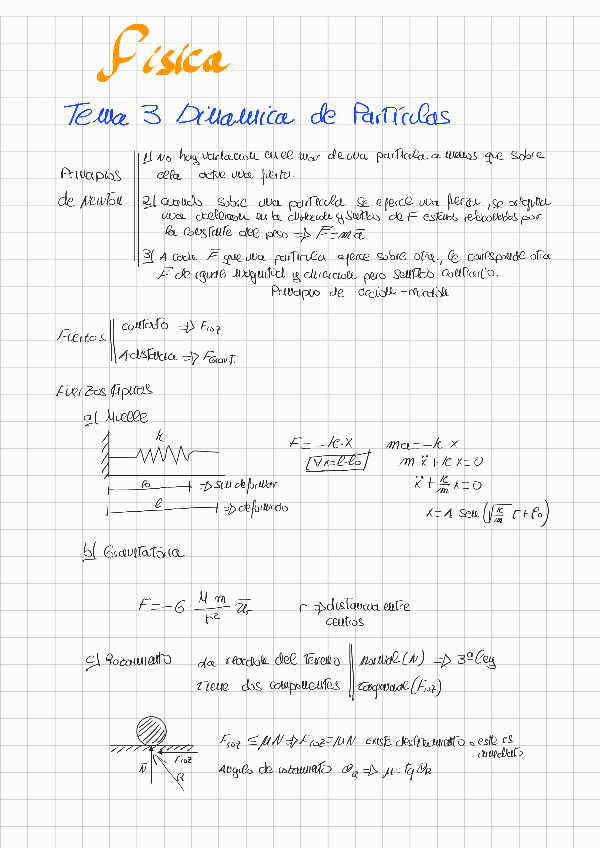 Física
Tema 3 Dinamica de Partículas
Principios de Newton
1) No hay variacion en el mov de una partícula a menos que sobre
ella actue una fuerza.
2) Cuando sobre una partícula se ejerce una fuerza, se origina
una aceleracion en la direccion y sentido de F estando relacionados por
la constante del peso => F = ma
3) A cada F que una partícula ejerce sobre otra, le corresponde otra
F de igual magnitud y direccion pero sentido contrario.
Principio de accion - reaccion
Fuerzas
contacto => Froz
A distancia => FGravit.
Fuerzas típicas
a) Muelle
k
F = -k·x
ma = -k·x
∀x=l-l0
m·ẍ + k x = 0
l0 => sin deformar
ẍ + k/m x = 0
l => deformado
x = A sen (√k/m t + φ0)
b) Gravitatoria
F = -G · M m / r² ur
r => distancia entre
centros
c) Rozamiento
La reaccion del terreno
tiene dos componentes
normal (N) => 3ª ley
tangencial (Froz)
Froz ≤ μN => Froz = μN existe deslizamiento o este es
inmediato
N
Froz
R
Angulo de rozamiento => μ = tg